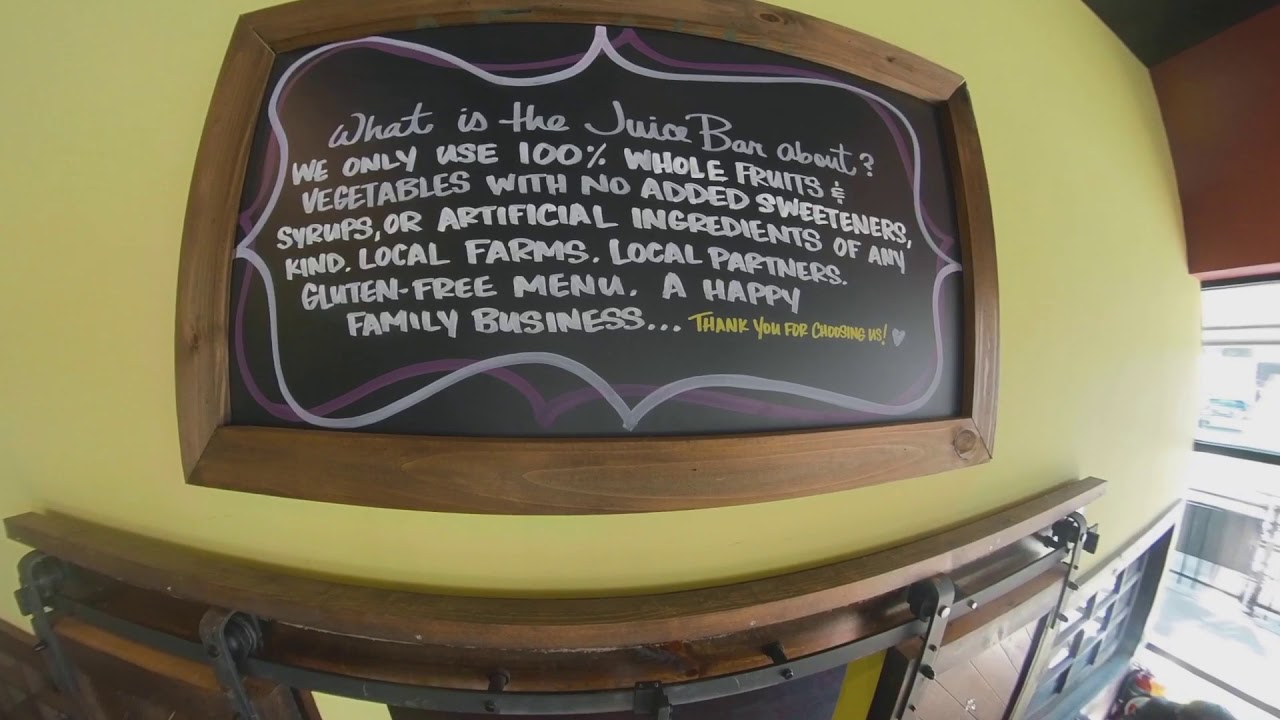 What is the Juice Bar about?
WE ONLY USE 100% WHOLE FRUITS &
VEGETABLES WITH NO ADDED SWEETENERS,
SYRUPS, OR ARTIFICIAL INGREDIENTS OF ANY
KIND. LOCAL FARMS. LOCAL PARTNERS.
GLUTEN-FREE MENU. A HAPPY
FAMILY BUSINESS... THANK YOU FOR CHOOSING US!